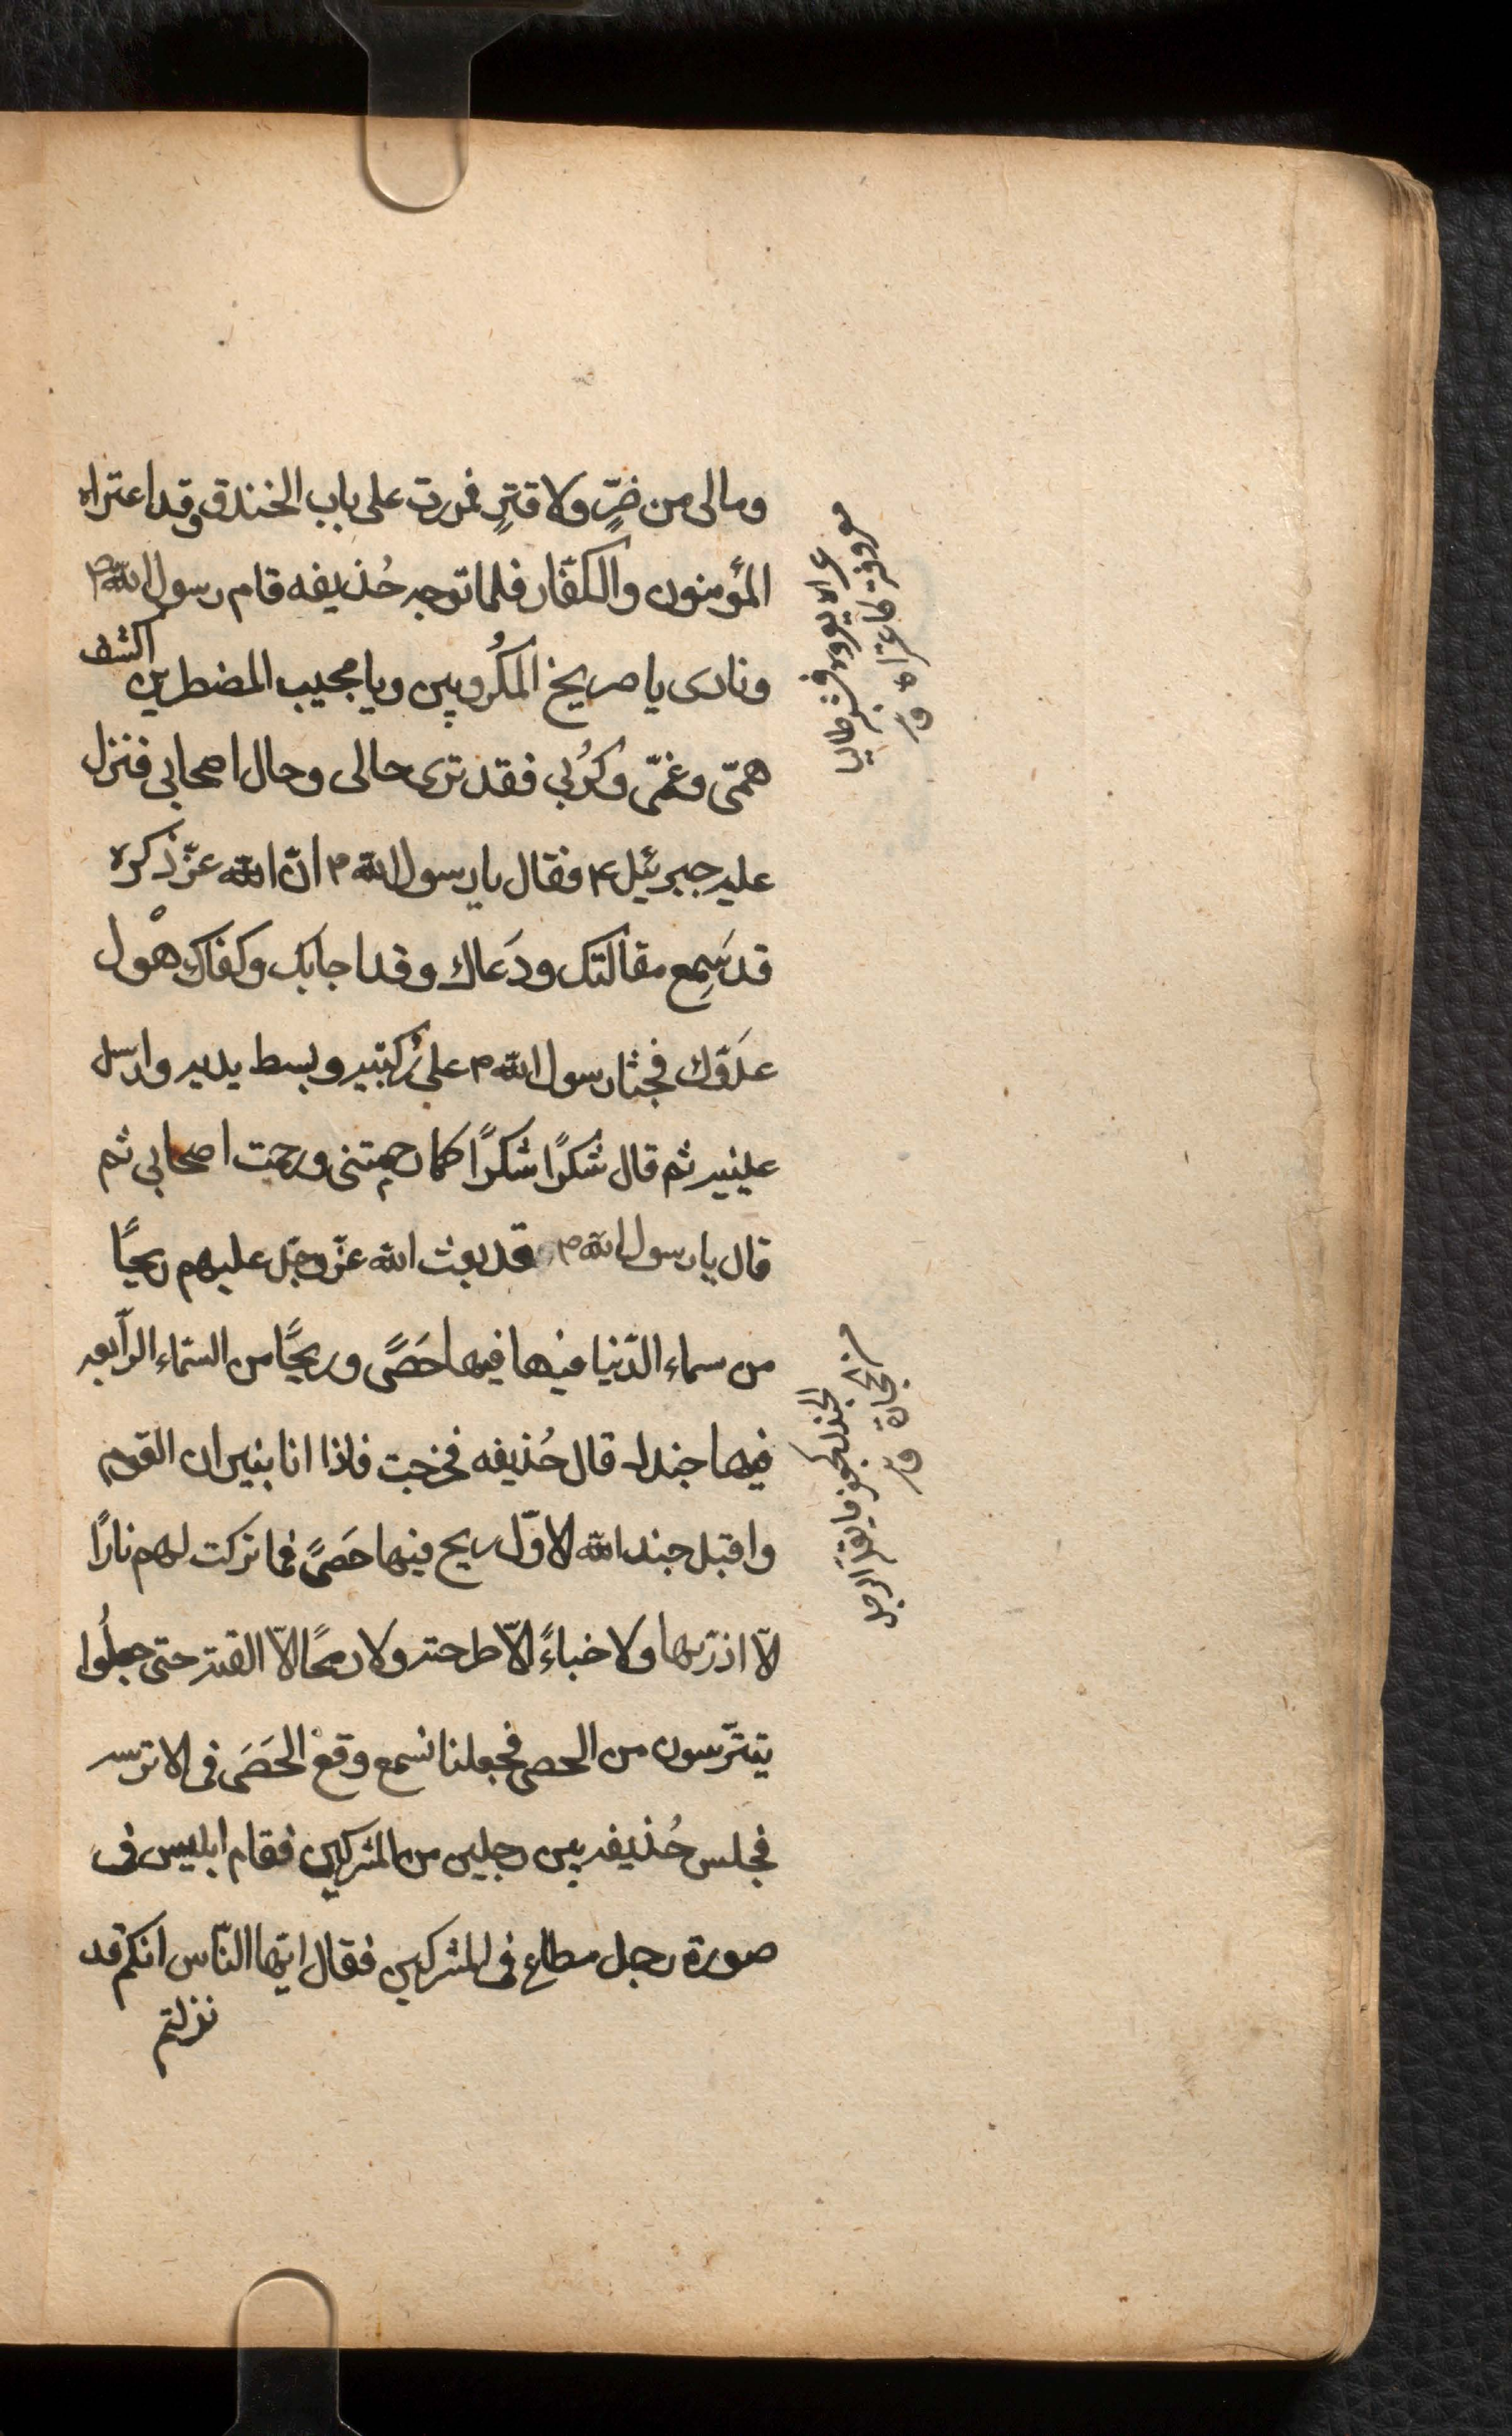 ومالى من ضرٍّ ولا قترٍ فمررت على باب الخندق وقد اعتراه
المؤمنون والكفّار فلما توجه حُذيفه قام رسول الله ص
ونادى يا صريخ المكرُوبين ويا مجيب المضطرين اكشف
همّى وغمّى وكرُبى فقد ترى حالى وحال اصحابى فنزل
عليه جبرئيل ع فقال يا رسول الله ص انّ الله عزّ ذكره
قد سَمِع مقالتك ودَعاك وقد اجابك وكفاك هْول
عدوّك فجثا رسول الله ص على رُكبتيه وبسط يديه وارسل
عينيه ثم قال شكرًا شكرًا كما رحمتنى ورحمت اصحابى ثم
قال يا رسول الله ص قد بعث الله عزّ وجّل عليهم ريحًا
من سماء الدّنيا فيها فيها حَصًى وريحًا من السّماء الرّابعه
فيها جندل قال حُذيفه فخرجت فاذا انا بنيران القوم
واقبل جند الله الاوّل ريح فيها حَصًى فما تركت لهم نارًا
الّا اذرتها ولا خباءً الّا طرحته ولا رمحًا الّا القته حتى جعلُوا
يتترّسون من الحصى فجعلنا نسمع وقعْ الحَصَى فى الاترسه
فجلس حُذيفه بين رجلين من المشركين فقام ابليس فى
صورة رجل مطاع فى المشركين فقال ايّها النّاس انكم قد
نزلتم
معروفه فاعتراه ق
الجندل كجعفر ما يقله الرجل
من الحجارة ق